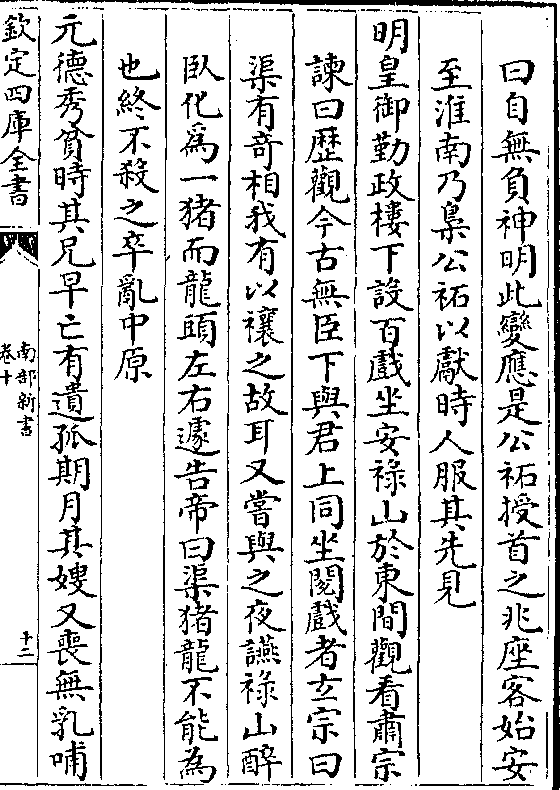 曰自無負神明此變應是公祏授首之兆座客始安
至淮南乃梟公祏以獻時人服其先見
明皇御勤政樓下設百戲坐安祿山於東間觀看肅宗
諫曰歷觀今古無臣下與君上同坐閱戲者玄宗曰
渠有奇相我有以禳之故耳又嘗與之夜讌祿山醉
臥化爲一猪而龍頭左右遽告帝曰渠猪龍不能為
也終不殺之卒亂中原
元德秀貧時其兄早亡有遺孤期月其嫂又喪無乳哺
欽定四庫全書
南部新書
卷十
十二